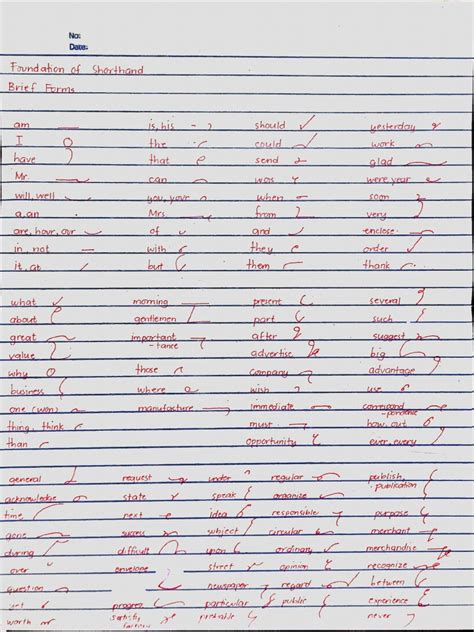 No:
Date:
Foundation of Shorthand
Brief Forms
am is, his should yesterday
I the could work
have that send glad
Mr. can was were, year
will, well you, your when soon
a, an Mrs. from very
are, hour, our of and enclose
in, not with they order
it, at but them thank
what morning present several
about gentlemen part such
great important -tance after suggest
value advertise big
why those company advantage
business where wish use
one (won) manufacture immediate correspond -pondence
thing, think must how, out
than opportunity ever, every
general request under regular publish, publication
acknowledge state speak organize
time next idea responsible purpose
gone success subject circular merchant
during difficult upon ordinary merchandise
over envelope street opinion recognize
question newspaper regard between
yet progress particular public experience
worth satisfy, satisfactory probable never